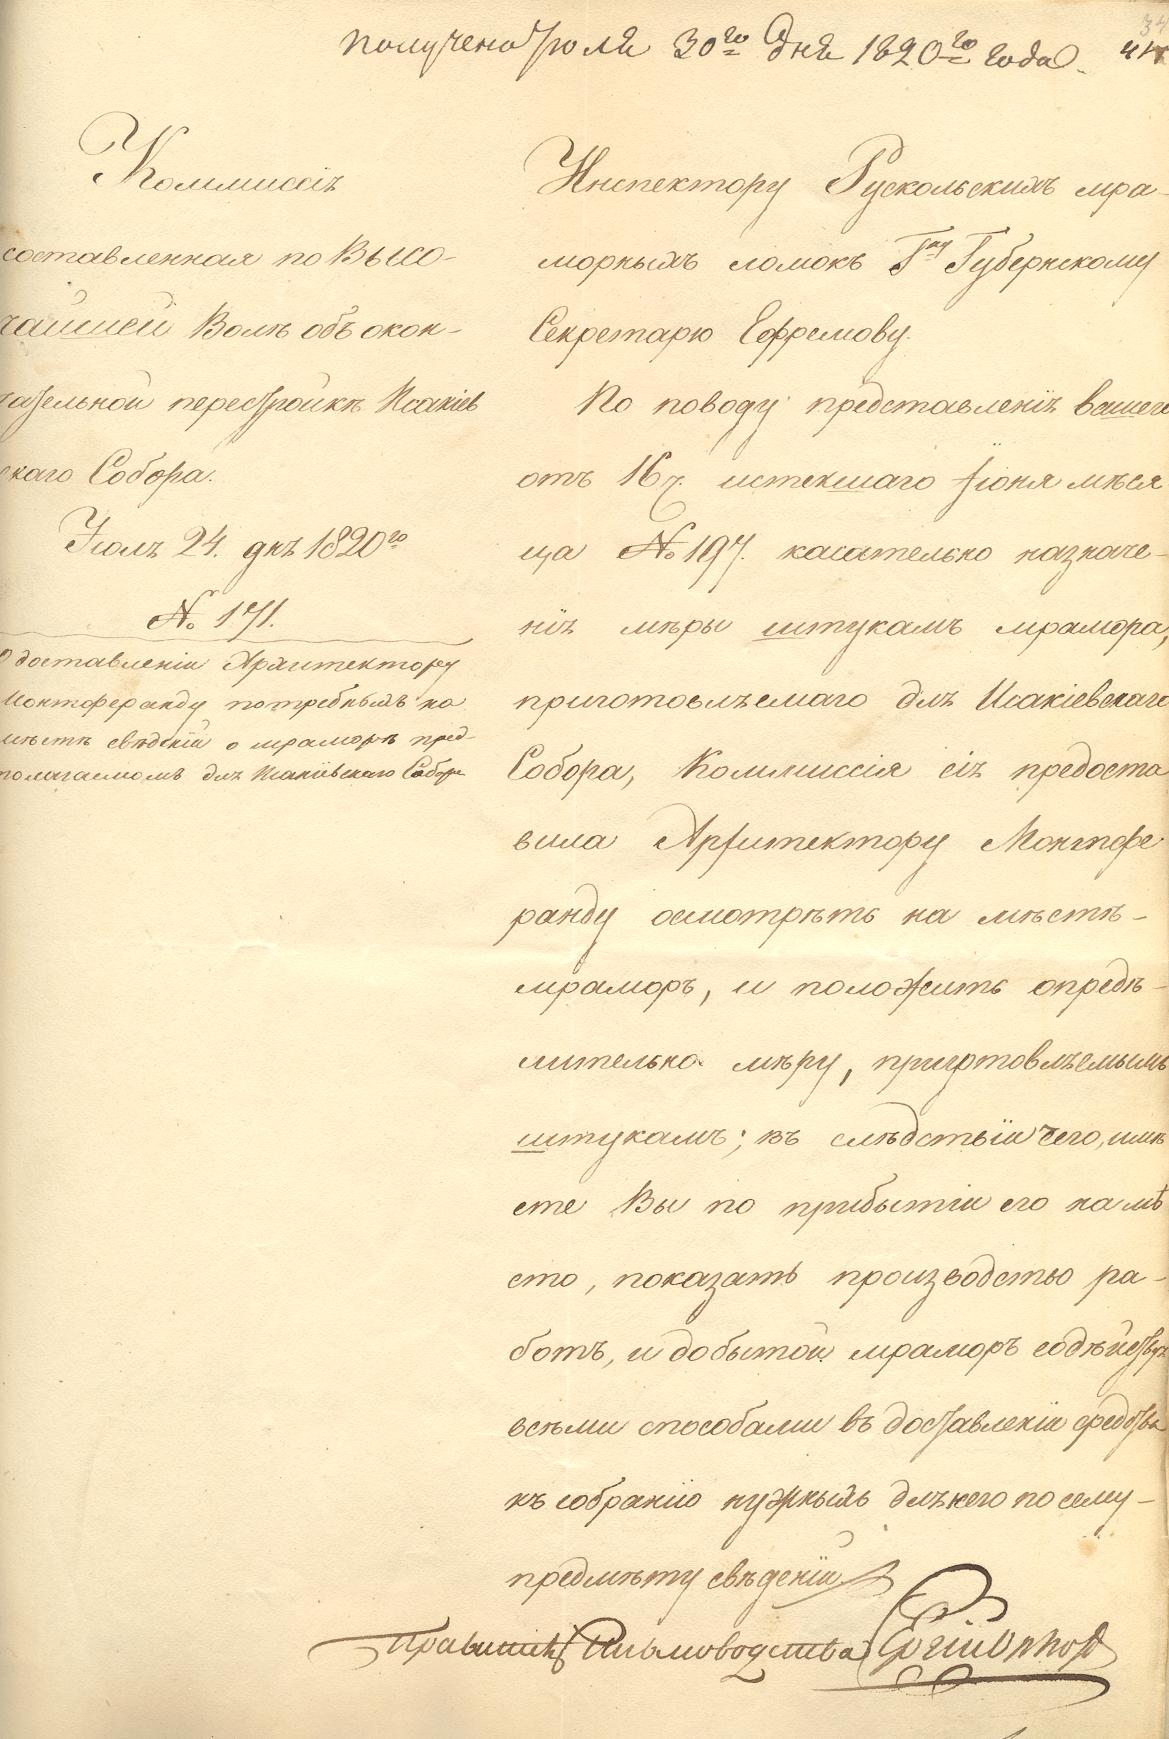 получено Іюля 30го дня 1820го года.
Коммиссія
составленная по Высо-
чайшей Волѣ объ окон-
чательной перестройкѣ Исакіев
скаго Собора.
Іюля 24. дня 1820го
№ 171.
О доставленіи Архитектору
Монтферанду потребныхъ на
мѣстѣ свѣденій о мраморѣ пред-
полагаемомъ для Исакіевскаго Собора
Инспектору Рускольскихъ мра-
морныхъ ломокъ Гну Губернскому
Секретарю Ефремову.
По поводу представленія вашего
отъ 16го истекшаго Іюня мѣся
ца № 197. касательно назначе-
нія мѣры штукамъ мрамора,
приготовляемаго для Исакіевскаго
Собора, Коммиссія сія предоста
вила Архитектору Монтфе
ранду осмотрѣть на мѣстѣ-
мраморъ, и положить опредѣ-
лительно мѣру, приготовляемымъ
штукамъ; въ слѣдствіи чего, имѣ
ете Вы по прибытіи его на мѣ
сто, показать производство ра-
ботъ, и добытой мраморъ содѣйствуя
всѣми способами въ доставленіи средства
къ собранію нужныхъ для него по сему-
предмѣту свѣденій
Правитель Письмоводства